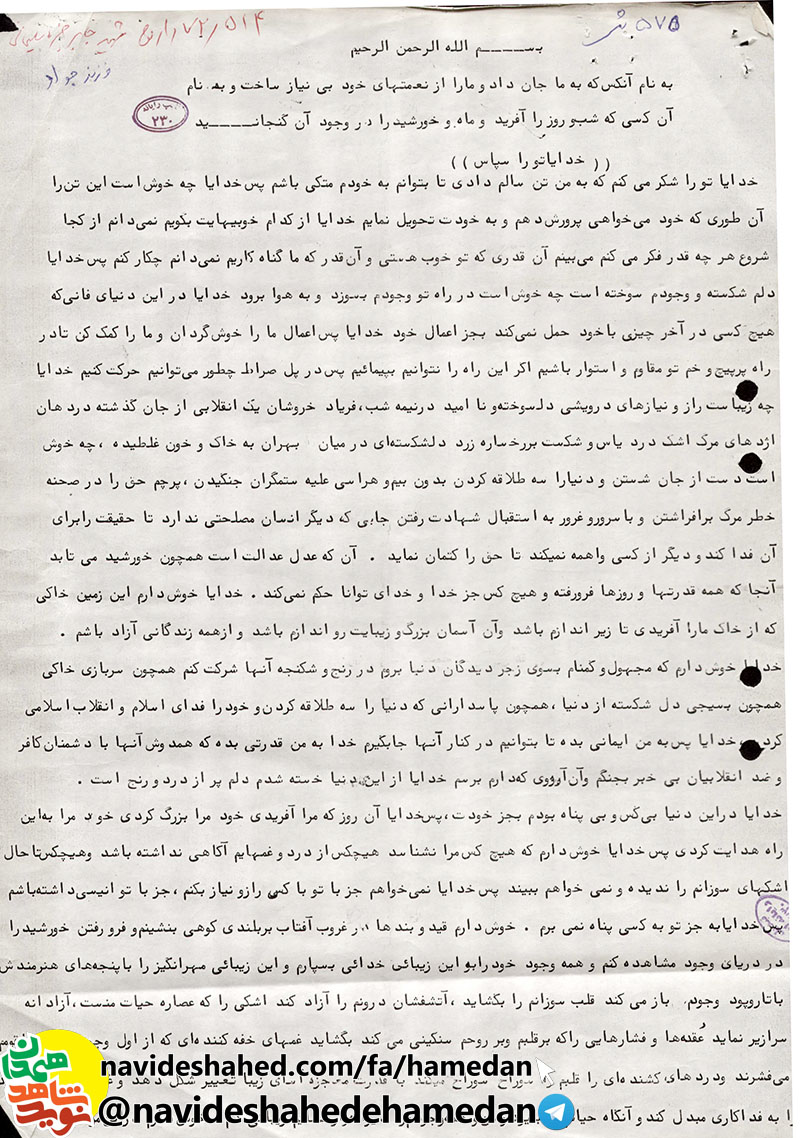 ۵۷۵
بســـــم الله الرحمن الرحیم
به نام آنکس که به ما جان داد و مارا از نعمتهای خود بی نیاز ساخت و به نام
آن کسی که شب و روز را آفرید و ماه و خورشید را در وجود آن گنجانـــــید
۲۳۰
( ( خدایا تو را سپاس ) )
خدایا تو را شکر می کنم که به من تن سالم دادی تا بتوانم به خودم متکی باشم پس خدایا چه خوش است این تن را
آن طوری که خود می‌خواهی پرورش دهم و به خودت تحویل نمایم خدایا از کدام خوبیهایت بگویم نمی‌دانم از کجا
شروع هر چه قدر فکر می کنم می‌بینم آن قدری که تو خوب هستی و آن قدر که ما گناه کاریم نمی دانم چکار کنم پس خدایا
دلم شکسته و وجودم سوخته است چه خوش است در راه تو وجودم بسوزد و به هوا برود خدایا در این دنیای فانی که
هیچ کسی در آخر چیزی با خود حمل نمی‌کند بجز اعمال خود خدایا پس اعمال ما را خوش گردان و ما را کمک کن تا در
راه پرپیچ و خم تو مقاوم و استوار باشیم اکر این راه را نتوانیم بپیمائیم پس در پل صراط چطور می‌توانیم حرکت کنیم خدایا
چه زیباست راز و نیازهای درویشی دلسوخته و نا امید درنیمه شب، فریاد خروشان یک انقلابی از جان گذشته در دهان
اژدهای مرگ اشک درد یاس و شکست بر رخساره زرد دلشکسته‌ای در میان بهران به خاک و خون غلطیده ، چه خوش
است دست از جان شستن و دنیا را سه طلاقه کردن بدون بیم و هراسی علیه ستمگران جنگیدن ، پرچم حق را در صحنه
خطر مرگ برافراشتن و با سرور و غرور به استقبال شهادت رفتن جایی که دیگر انسان مصلحتی ندارد تا حقیقت را برای
آن فدا کند و دیگر از کسی واهمه نمیکند تا حق را کتمان نماید . آن که عدل عدالت است همچون خورشید می تابد
آنجا که همه قدرتها و روزها فرورفته و هیچ کس جز خدا و خدای توانا حکم نمی‌کند . خدایا خوش دارم این زمین خاکی
که از خاک مارا آفریدی تا زیر اندازم باشد وآن آسمان بزرگ و زیبایت رو اندازم باشد و ازهمه زندگانی آزاد باشم .
خدایا خوش دارم که مجهول و گمنام بسوی زجر دیدگان دنیا بروم در رنج و شکنجه آنها شرکت کنم همچون سربازی خاکی
همچون بسیجی دل شکسته از دنیا ، همچون پاسدارانی که دنیا را سه طلاقه کردن و خود را فدای اسلام و انقلاب اسلامی
کردن خدایا پس به من ایمانی بده تا بتوانیم در کنار آنها جابگیرم خدا به من قدرتی بده که همدوش آنها با دشمنان کافر
و ضد انقلابیان بی خبر بجنگم وآن آرووی که دارم برسم خدایا از این دنیا خسته شدم دلم پر از درد و رنج است .
خدایا دراین دنیا بی کس و بی پناه بودم بجز خودت ، پس خدایا آن روز که مرا آفریدی خود مرا بزرگ کردی خود مرا به این
راه هدایت کردی پس خدایا خوش دارم که هیچ کس مرا نشناسد هیچکس از درد و غمهایم آگاهی نداشته باشد وهیچکس تا حال
اشکهای سوزانم را ندیده و نمی خواهم ببیند پس خدایا نمی‌خواهم جز با تو با کسی راز و نیاز بکنم ، جز با تو انیسی داشته باشم
پس خدایا به جز تو به کسی پناه نمی برم . خوش دارم قید و بندها در غروب آفتاب بربلندی کوهی بنشینم و فرو رفتن خورشید را
در دریای وجود مشاهده کنم و همه وجود خود را بو این زیبائی خدائی بسپارم و این زیبائی مهرانگیز را با پنجه‌های هنرمندش
با تاروپود وجودم، باز می کند قلب سوزانم را بگشاید ، آتشفشان درونم را آزاد کند اشکی را که عصاره حیات منست ، آزادانه
سرازیر نماید عُقده‌ها و فشارهایی راکه برقلبم وبر روحم سنگینی می کند بگشاید غمهای خفه کننده‌ای که از اول
می‌فشرند ودردهای کشنده‌ای را قلبم را سوراخ سوراخ میکند به قدرت معجزه آسای زیبا تغییر شکل دهد و
را به فداکاری مبدل کند و آنگاه
نوید شاهد همدان
navideshahed.com/fa/hamedan
@navideshahedehamedan